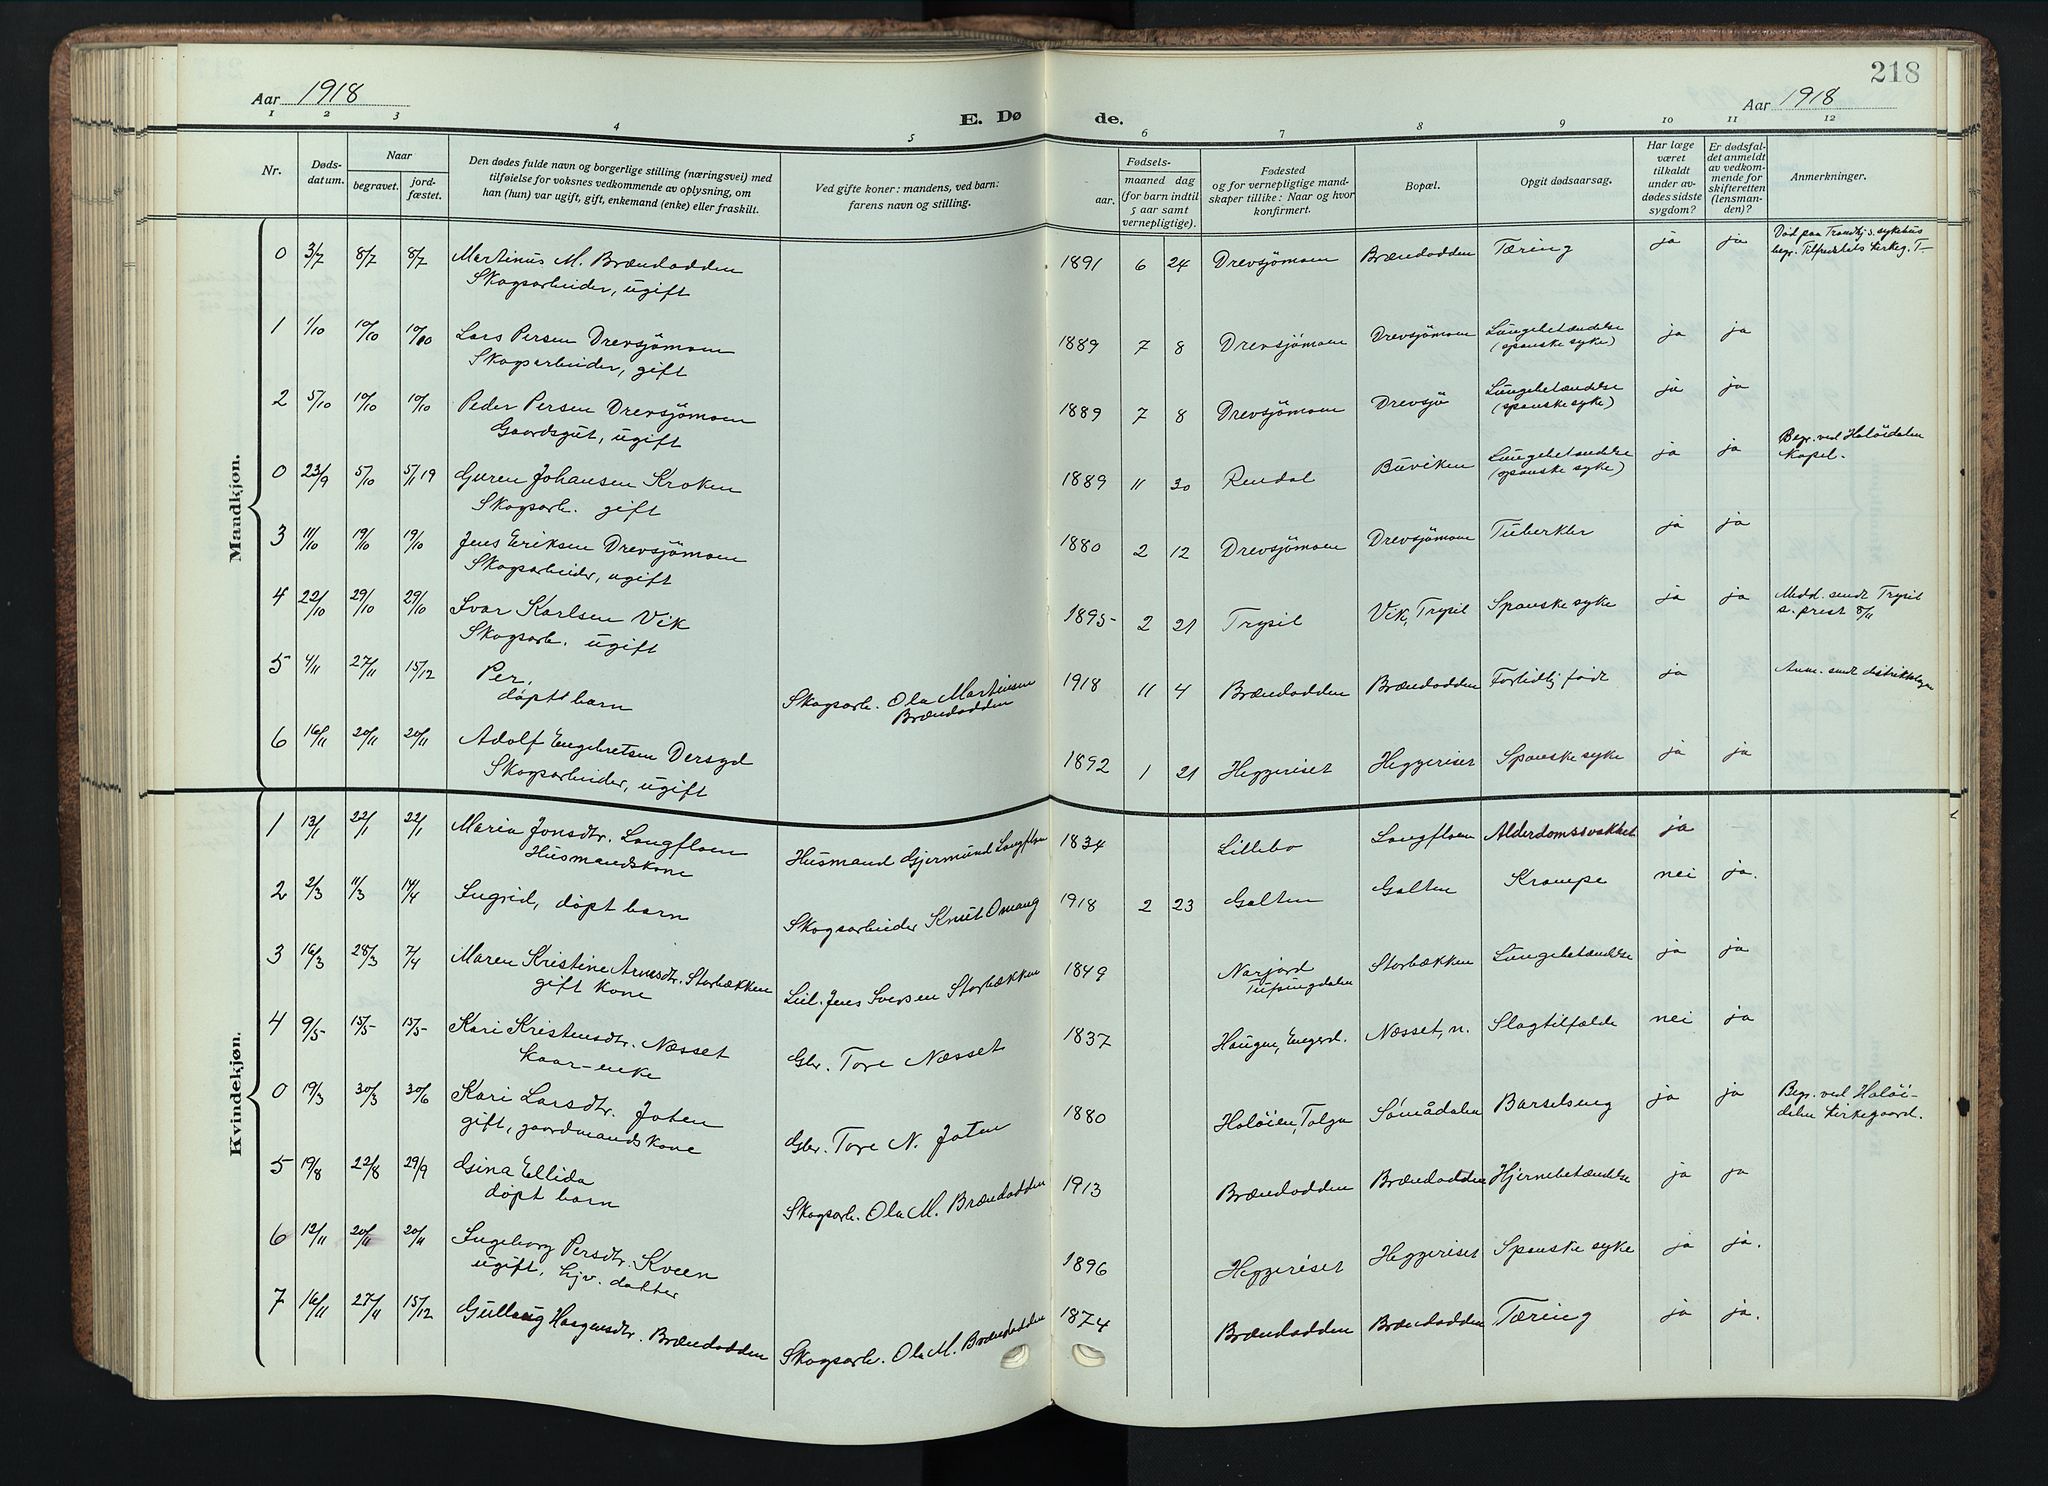 218
Aar 1918
E. Dø de.
Aar 1918
1 2 3 4 5 6 7 8 9 10 11 12
Nr.
Døds-
datum.
Naar
begravet.
jord-
fæstet.
Den dødes fulde navn og borgerlige stilling (næringsvei) med
tilføielse for voksnes vedkommende av oplysning, om
han (hun) var ugift, gift, enkemand (enke) eller fraskilt.
Ved gifte koner: mandens, ved barn:
farens navn og stilling.
Fødsels-
aar.
maaned dag
(for barn indtil
5 aar samt
vernepligtige).
Fødested
og for vernepligtige mand-
skaper tillike: Naar og hvor
konfirmert.
Bopæl.
Opgit dødsaarsag.
Har læge
været
tilkaldt
under av-
dødes sidste
sygdom?
Er dødsfal-
det anmeldt
av vedkom-
mende for
skifteretten
(lensman-
den)?
Anmerkninger.
Mandkjøn.
0 3/7 8/7 8/7 Martinus M. Brændodden 1891 6 24 Drevsjømoen Brændodden Tæring ja ja Død paa Trondhj.s sykehus
Skogsarbeider, ugift begr. Tilfredshets kirkeg. T-
1 1/10 10/10 10/10 Lars Persen Drevsjømoen 1889 7 8 Drevsjømoen Drevsjømoen Lungebetændelse ja ja
Skogsarbeider, gift (spanske syke)
2 5/10 10/10 10/10 Peder Persen Drevsjømoen 1889 7 8 Drevsjømoen Drevsjø Lungebetændelse ja ja
Gaardsgut, ugift (spanske syke)
0 23/9 5/10 5/1 19 Guren Johansen Kroken 1889 11 30 Rendal Buviken Lungebetændelse ja ja Begr. ved Holøidalen
Skogsarb. gift (spanske syke) Kapel.
3 11/10 19/10 19/10 Jens Eriksen Drevsjømoen 1880 2 12 Drevsjømoen Drevsjømoen Tuberkler ja ja
Skogsarbeider, ugift
4 22/10 29/10 29/10 Ivar Karlsen Vik 1895 2 21 Trysil Vik, Trysil Spanske syke ja ja Medd. sendt Trysil
Skogsarb. ugift s.prest 8/11
5 4/11 27/11 15/12 Per, Skogsarb. Ola Martinsen 1918 11 4 Brændodden Brændodden Fortidlig født ja Anm. sendt distriktslægen
døpt barn Brændodden
6 16/11 20/11 20/11 Adolf Engebretsen Dersyd 1892 1 21 Heggeriset Heggeriset Spanske syke ja ja
Skogsarbeider, ugift
Kvindekjøn.
1 13/1 22/1 22/1 Maria Jonsdtr. Longfloen Husmand Gjermund Longfloen 1834 Lillebo Longfloen Alderdomssvakhet ja
Husmandskone
2 2/3 11/3 14/4 Ingrid, døpt barn Skogsarbeider Knut Omang 1918 2 23 Galten Galten Krampe nei ja.
3 16/3 28/3 7/4 Maren Kristine Arnesdtr. Storbækken Leil. Jens Iversen Storbækken 1849 Narjord Storbækken Lungebetændelse ja ja
gift kone Tufsingdalen
4 9/5 15/5 15/5 Kari Kristensdtr. Næsset Gbr. Tore Næsset 1837 Haugen, Engerd. Næsset, n. Slagtilfælde nei ja
Kaar-enke
0 19/3 30/3 30/6 Kari Larsdtr. Joten Gbr. Tore N. Joten 1880 Holøien, Tolga Sømådalen Barselseng ja ja Begr. ved Holøi-
gift, gaardmandskone dalen kirkegaard.
5 19/8 22/8 29/9 Gina Ellida Skogsarb. Ola M. Brændodden 1913 Brændodden Brændodden Hjernebetændelse ja ja
døpt barn
6 12/11 20/11 20/11 Ingeborg Persdtr. Kveen 1896 Heggeriset Heggeriset Spanske syke ja ja.
ugift, hjv. datter
7 16/11 27/11 15/12 Gullaug Haagensdtr. Brændodden Skogsarb. Ola M. Brændodden 1874 Brændodden Brændodden Tæring ja ja.